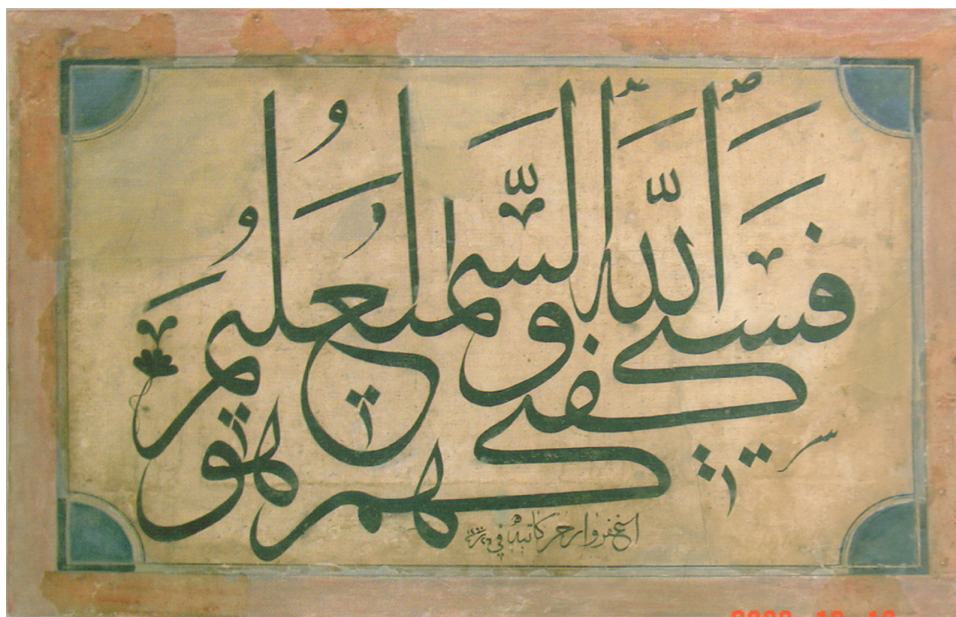 فَسَيَكْفِيكَهُمُ اللَّهُ وَهُوَ السَّمِيعُ الْعَلِيمُ
اغفر وارحم كاتبه في